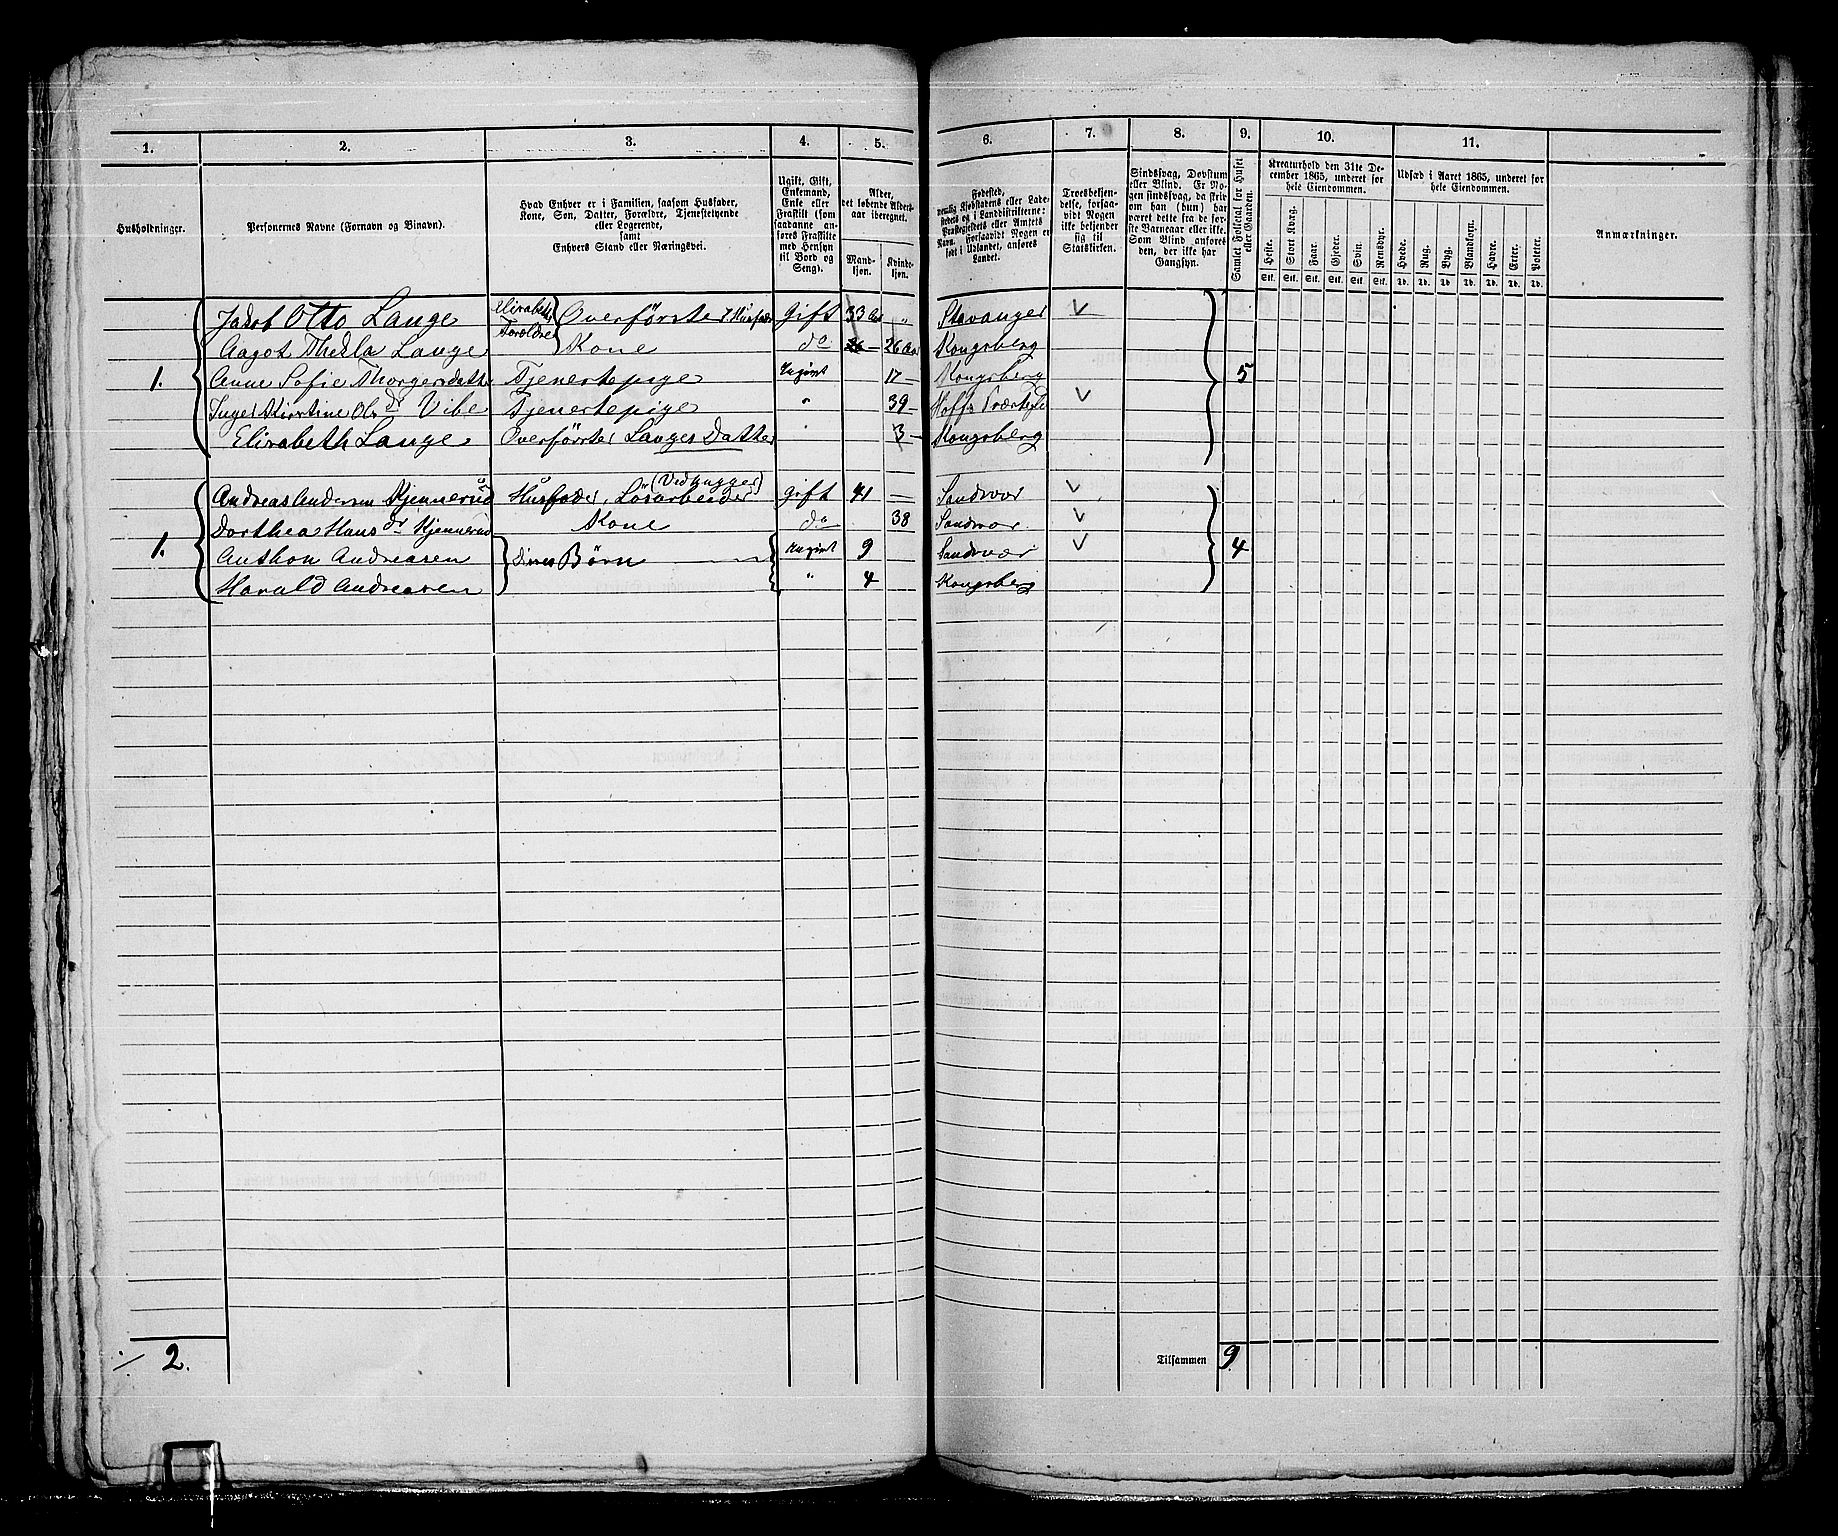 1. 2. 3. 4. 5. 6. 7. 8. 9. 10. 11.
Husholdninger.
Personernes Navne (Fornavn og Binavn).
Hvad Enhver er i Familien, saasom Husfader,
Kone, Søn, Datter, Forældre, Tjenestetyende
eller Logerende,
samt
Enhvers Stand eller Næringsvei.
Ugift, Gift,
Enkemand,
Enke eller
Fraskilt (som
saadanne an-
føres Fraskilte
med Hensyn
til Bord og
Seng).
Alder,
det løbende Alders-
aar iberegnet.
Mand-
kjøn.
Kvinde-
kjøn.
Fødested,
nemlig Kjøbstadens eller Lade-
stedets og i Landdistrikterne:
Præstegjeldets eller Amtets
Navn. Forsaavidt Nogen er
født i Udlandet, anføres
Landet.
Troesbekjen-
delse, forsaa-
vidt Nogen
ikke bekjender
sig til
Statskirken.
Sindssvag, Døvstum
eller Blind. Er No-
gen sindssvag, da skri-
ves om han (hun) har
været dette fra de før-
ste Barneaar eller ikke.
Som Blind anføres
den, der ikke har
Gangsyn.
Samlet Folketal for Huset
eller Gaarden.
Kreaturhold den 31te De-
cember 1865, underet for
hele Eiendommen.
Heste. Stort Kvæg. Faar. Gjeder. Sviin. Rensdyr.
Stk. Stk. Stk. Stk. Stk. Stk.
Udsæd i Aaret 1865, underet for
hele Eiendommen.
Hvede. Rug. Byg. Blandkorn. Havre. Erter. Poteter.
Td. Td. Td. Td. Td. Td. Td.
Anmærkninger.
Jakob Otto Lange Elisabeths Forældre Overførster, Husfader gift 33 Aar " Stavanger
Aagot Thekla Lange Kone do 26 26 Aar Kongsberg
1. Anne Sofie Thorgersdatter Tjenestepige Ugivt 17 Kongsberg 5
Inger Kirstine Olsdr Vibe Tjenestepige " 39 Hoffs Præstegjd
Elisabeth Lange Overførster Langes Datter " 3 Kongsberg
Andreas Andersen Kjennerud Husfader, Løsarbeider (Vedhugger) gift 41 Sandsvær
Dorthea Hansdr Kjennerud Kone do 38 Sandsvær
1. Anthon Andreasen Deres Børn Ugivt 9 Sandsvær 4
Harald Andreasen " 4 Kongsberg
2.
Tilsammen 9